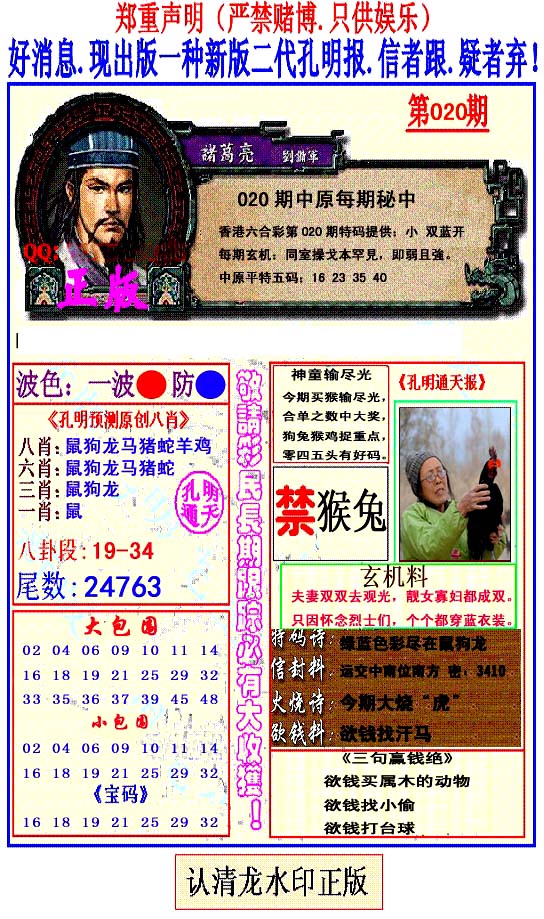 郑重声明（严禁赌博.只供娱乐）
好消息.现出版一种新版二代孔明报.信者跟.疑者弃!
第020期
諸葛亮
020 期中原每期秘中
香港六合彩第 020 期特码提供：小 双蓝开
每期玄机：同室操戈本罕見，即弱且強。
中原平特五码：16 23 35 40
QQ:
正版
波色：一波 防
《孔明预测原创八肖》
八肖:鼠狗龙马猪蛇羊鸡
六肖:鼠狗龙马猪蛇
三肖:鼠狗龙
一肖:鼠
孔明
通天
八卦段:19-34
尾数:24763
大包围
02 04 06 09 10 11 14
16 18 19 21 25 29 32
33 35 36 37 39 45 48
小包围
02 04 06 09 10 11 14
16 18 19 21 25 29 32
《宝码》
16 18 19 21 25 29 32
敬請彩民長期跟踪必有大收獲！
神童输尽光
今期买猴输尽光，
合单之数中大奖，
狗兔猴鸡捉重点，
零四五头有好码。
《孔明通天报》
禁猴兔
玄机料
夫妻双双去观光，靓女寡妇都成双。
只因怀念烈士们，个个都穿蓝衣装。
特码诗：绿蓝色彩尽在鼠狗龙
信封料：运交中南位南方 密：3410
火烧诗：今期大烧“虎”
欲钱料：欲钱找汗马
《三句赢钱绝》
欲钱买属木的动物
欲钱找小偷
欲钱打台球
认清龙水印正版